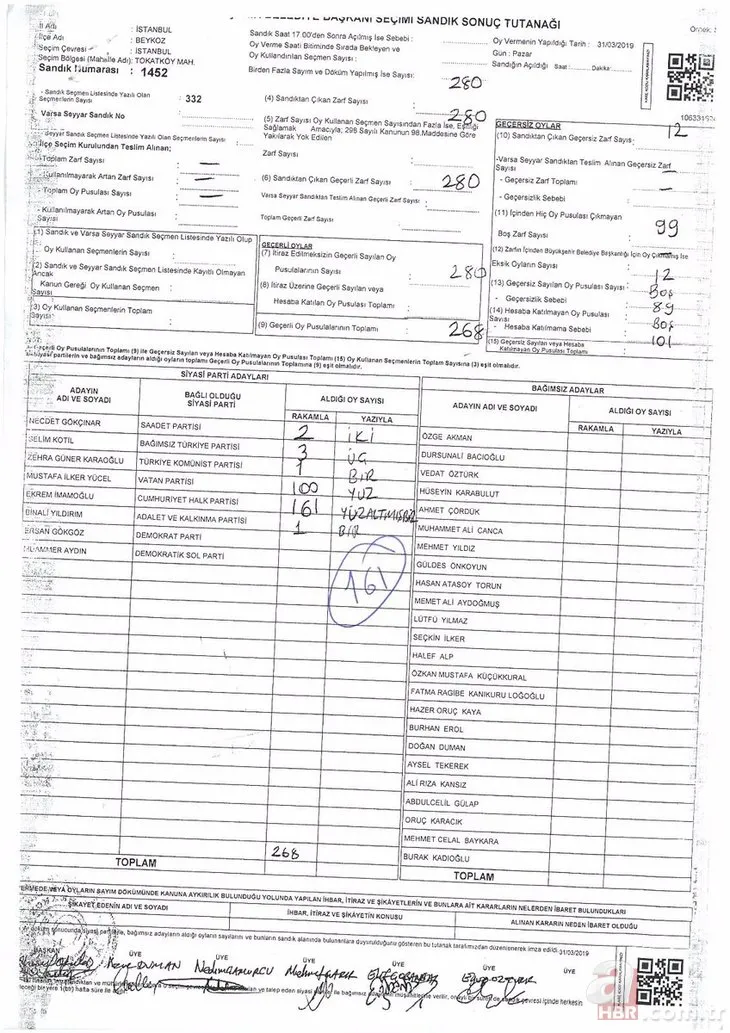 BELEDİYE BAŞKANI SEÇİMİ SANDIK SONUÇ TUTANAĞI
İl Adı : İSTANBUL
İlçe Adı : BEYKOZ
Seçim Çevresi : İSTANBUL
Seçim Bölgesi (Mahalle Adı): TOKATKÖY MAH.
Sandık Numarası : 1452
Sandık Saat 17.00'den Sonra Açılmış İse Sebebi :
Oy Verme Saati Bitiminde Sırada Bekleyen ve
Oy Kullandırılan Seçmen Sayısı :
Birden Fazla Sayım ve Döküm Yapılmış İse Sayısı:
Oy Vermenin Yapıldığı Tarih : 31/03/2019
Gün : Pazar
Sandığın Açıldığı Saat :........ Dakika:........
Örnek:
- Sandık Seçmen Listesinde Yazılı Olan
Seçmenlerin Sayısı : 332
Varsa Seyyar Sandık No
- Seyyar Sandık Seçmen Listesinde Yazılı Olan Seçmenlerin Sayısı
İlçe Seçim Kurulundan Teslim Alınan;
- Toplam Zarf Sayısı : —
- Kullanılmayarak Artan Zarf Sayısı : —
- Toplam Oy Pusulası Sayısı : —
- Kullanılmayarak Artan Oy Pusulası
Sayısı
(1) Sandık ve Varsa Seyyar Sandık Seçmen Listesinde Yazılı Olup
Oy Kullanan Seçmenlerin Sayısı :
(2) Sandık ve Seyyar Sandık Seçmen Listesinde Kayıtlı Olmayan
Ancak
Kanun Gereği Oy Kullanan Seçmen :
Sayısı
(3) Oy Kullanan Seçmenlerin Toplam
Sayısı
280
(4) Sandıktan Çıkan Zarf Sayısı : 280
(5) Zarf Sayısı Oy Kullanan Seçmen Sayısından Fazla İse, Eşitliği
Sağlamak Amacıyla; 298 Sayılı Kanunun 98.Maddesine Göre
Yakılarak Yok Edilen
Zarf Sayısı :
(6) Sandıktan Çıkan Geçerli Zarf Sayısı : 280
Varsa Seyyar Sandıktan Teslim Alınan Geçerli Zarf Sayısı :
Toplam Geçerli Zarf Sayısı :
GEÇERLİ OYLAR
(7) İtiraz Edilmeksizin Geçerli Sayılan Oy
Pusulalarının Sayısı : 280
(8) İtiraz Üzerine Geçerli Sayılan veya
Hesaba Katılan Oy Pusulası Toplamı :
(9) Geçerli Oy Pusulalarının Toplamı : 268
GEÇERSİZ OYLAR
(10) Sandıktan Çıkan Geçersiz Zarf Sayısı 12
-Varsa Seyyar Sandıktan Teslim Alınan Geçersiz Zarf
Sayısı —
- Geçersiz Zarf Toplamı : —
- Geçersizlik Sebebi :
(11) İçinden Hiç Oy Pusulası Çıkmayan
Boş Zarf Sayısı : 99
(12) Zarfın İçinden Büyükşehir Belediye Başkanlığı İçin Oy Çıkmamış İse
Eksik Oyların Sayısı : 12
(13) Geçersiz Sayılan Oy Pusulası Sayısı : Boş
- Geçersizlik Sebebi : 89
(14) Hesaba Katılmayan Oy Pusulası
Sayısı
- Hesaba Katılmama Sebebi : Boş
(15) Geçersiz Sayılan veya Hesaba
Katılmayan Oy Pusulası Toplamı 101
Geçerli Oy Pusulalarının Toplamı (9) ile Geçersiz Sayılan veya Hesaba Katılmayan Oy Pusulası Toplamı (15) Oy Kullanan Seçmenlerin Toplam Sayısına (3) eşit olmalıdır.
Siyasi partilerin ve bağımsız adayların aldığı oyların toplamı Geçerli Oy Pusulalarının Toplamına (9) eşit olmalıdır.
SİYASİ PARTİ ADAYLARI
ADAYIN ADI VE SOYADI BAĞLI OLDUĞU SİYASİ PARTİ ALDIĞI OY SAYISI
RAKAMLA YAZIYLA
NECDET GÖKÇINAR SAADET PARTİSİ 2 İKİ
SELİM KOTİL BAĞIMSIZ TÜRKİYE PARTİSİ 3 ÜÇ
ZEHRA GÜNER KARAOĞLU TÜRKİYE KOMÜNİST PARTİSİ 1 BİR
MUSTAFA İLKER YÜCEL VATAN PARTİSİ 100 YÜZ
EKREM İMAMOĞLU CUMHURİYET HALK PARTİSİ 161 YÜZALTMIŞBİR
BİNALİ YILDIRIM ADALET VE KALKINMA PARTİSİ 1 BİR
ERSAN GÖKGÖZ DEMOKRAT PARTİ
MUAMMER AYDIN DEMOKRATİK SOL PARTİ
161
TOPLAM 268
BAĞIMSIZ ADAYLAR
ADAYIN ADI VE SOYADI ALDIĞI OY SAYISI
RAKAMLA YAZIYLA
ÖZGE AKMAN
DURSUNALİ BACIOĞLU
VEDAT ÖZTÜRK
HÜSEYİN KARABULUT
AHMET ÇORDÜK
MUHAMMET ALİ CANCA
MEHMET YILDIZ
GÜLDES ÖNKOYUN
HASAN ATASOY TORUN
MEMET ALİ AYDOĞMUŞ
LÜTFÜ YILMAZ
SEÇKİN İLKER
HALEF ALP
ÖZKAN MUSTAFA KÜÇÜKKURAL
FATMA RAGİBE KANIKURU LOĞOĞLU
HAZER ORUÇ KAYA
BURHAN EROL
DOĞAN DUMAN
AYSEL TEKEREK
ALİ RIZA KANSIZ
ABDULCELİL GÜLAP
ORUÇ KARACIK
MEHMET CELAL BAYKARA
BURAK KADIOĞLU
TOPLAM
VEYA OYLARIN SAYIM DÖKÜMÜNDE KANUNA AYKIRILIK BULUNDUĞU YOLUNDA YAPILAN İHBAR, İTİRAZ VE ŞİKAYETLERİN VE BUNLARA AİT KARARLARIN NELERDEN İBARET BULUNDUKLARI
ŞİKAYET EDENİN ADI VE SOYADI İHBAR, İTİRAZ VE ŞİKAYETİN KONUSU ALINAN KARARIN NEDEN İBARET OLDUĞU
döküm sonucunda siyasi partilerle, bağımsız adayların aldığı oyların sayılarını ve bunların sandık alanında bulunanlara duyurulduğunu gösteren bu tutanak tarafımızdan düzenlenerek imza edildi.31/03/2019
BAŞKAN ÜYE ÜYE ÜYE ÜYE ÜYE ÜYE
a
HBR.com.tr